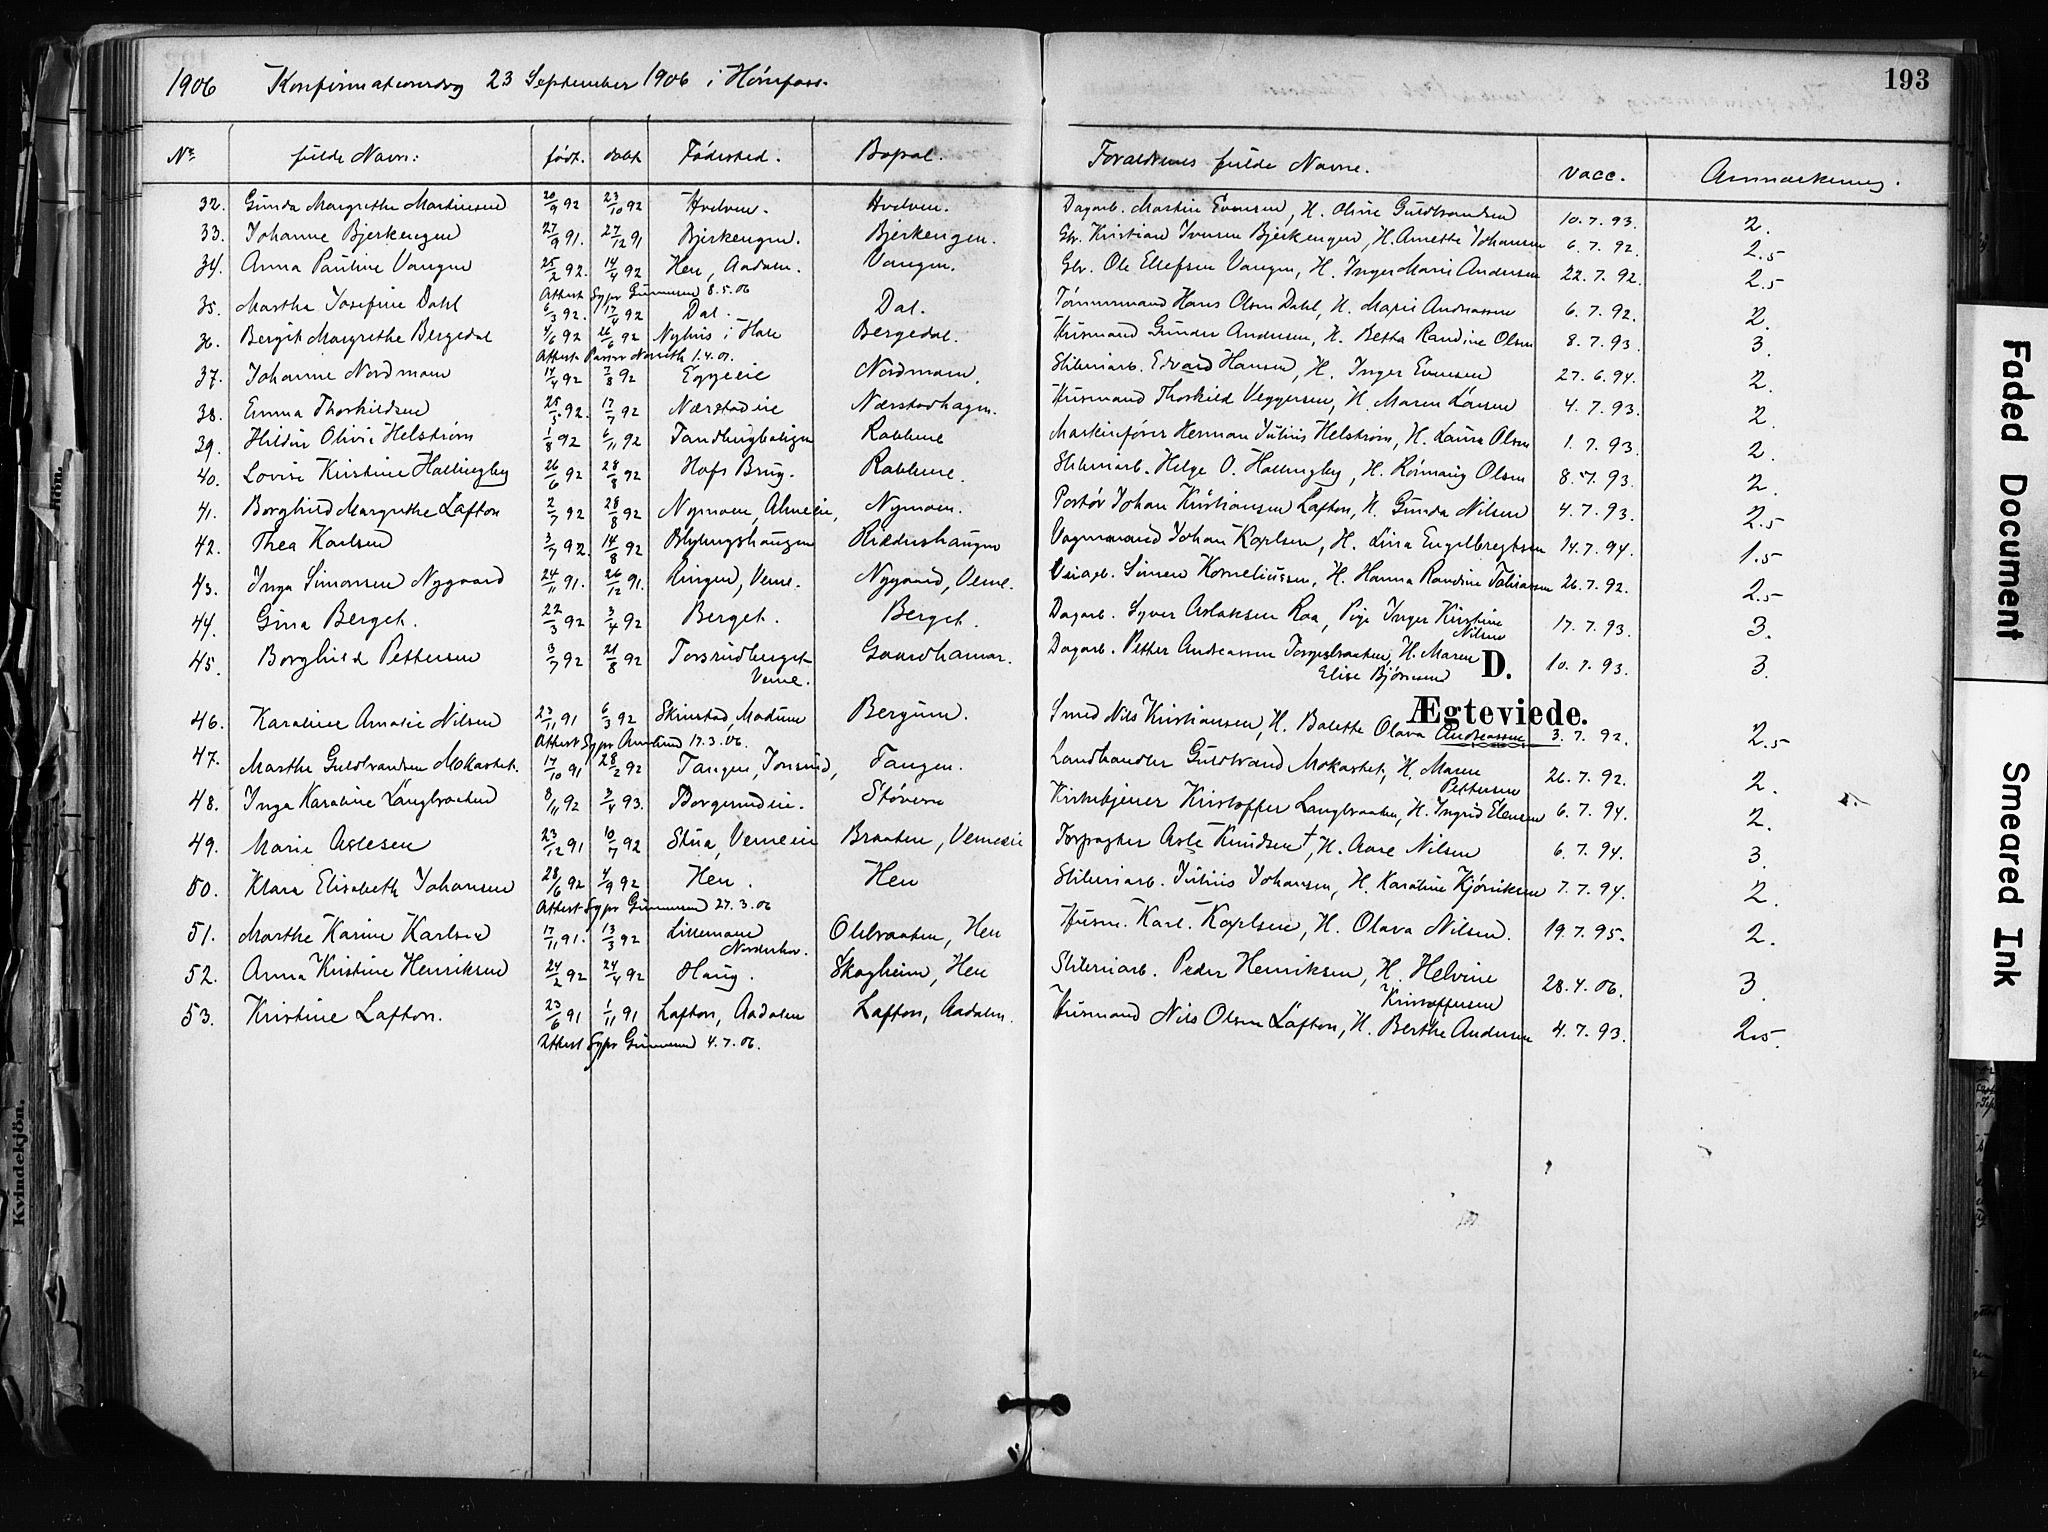 193
1906 Konfirmationsdag 23 September 1906 i Hønefoss.
No. fulde Navn: født. døbt Fødested. Bopæl. Forældrenes fulde Navne. vacc. Anmærkning.
32. Gunda Margrethe Martinsen 20/9 92 23/10 92 Hvelven. Hvelven. Dagarb. Martin Evensen, H. Oline Guldbrandsen 10.7.93. 2.
33. Johanne Bjerkengen 27/9 91. 27/12 91 Bjerkengen. Bjerkengen. Gbr. Kristian Iversen Bjerkengen, H. Anette Johansen 6.7.92. 2.5
34. Anna Pauline Vangen 25/2 92. 14/4 92 Hen, Aadalen. Vangen. Gbr. Ole Ellefsen Vangen, H. Inger Marie Andersen 22.7.92. 2.5
Attest Sgpr Gunnesen 8.5.06
35. Marthe Josefine Dahl 6/3 92. 17/4 92 Dal. Dal. Tømmermand Hans Olsen Dahl, H. Marie Andreassen 6.7.92. 2.
36. Bergit Margrethe Bergedal 4/6 92 26/6 92 Nyhus i Hole Bergedal. Husmand Gunder Andersen, H. Betha Randine Olsen 8.7.93. 3.
Attest Pastor 1.4.01.
37. Johanne Nordmoen 17/4 92 7/8 92 Eggeeie Nordmoen. Sliberiarb. Edvard Hansen, H. Inger Evensen 27.6.94. 2.
38. Emma Thorkildsen 25/5 92. 17/7 92 Nærstadeie Nærstadhagen. Husmand Thorkild Veggersen, H. Maren Larsen 4.7.93. 2.
39. Hildur Olivie Helstrøm 1/8 92 6/11 92 Tandbergboligen Rabbene Maskinfører Herman Julius Helstrøm, H. Laura Olsen 1.7.93. 2.
40. Lovise Kristine Hallingby 26/6 92 28/8 92 Hofs Brug. Rabbene. Sliberiarb. Helge O. Hallingby, H. Rønnaug Olsen 8.7.93. 2.
41. Borghild Margrethe Lafton 2/7 92 28/8 92 Nymoen, Almeeie, Nymoen. Portør Johan Kristiansen Lafton, H. Gunda Nilsen 4.7.93. 2.5
42. Thea Karlsen 3/7 92. 14/8 92 Blybergshaugen Vognmand Johan Karlsen, H. Lina Engelbregtsen 14.7.94. 1.5
43. Inga Simonsen Nygaard 24/11 91. 26/12 91. Ringen, Veme. Nygaard, Veme. Veiarb. Simen Korneliussen, H. Hanna Randine Tobiassen 26.7.92. 2.5
44. Gina Berget. 22/3 92 3/4 92 Berget. Berget. Dagarb. Syver Aslaksen Raa, Pige Inger Kristine Nilsen 17.7.93. 3.
45. Borghild Pettersen 3/7 92 21/8 92 Torsrudberget Veme. Gaardhamar. Dagarb. Petter Andreassen Torgersbraaten, H. Maren Elise Bjørnsen 10.7.93. 3.
D.
Ægteviede.
46. Karoline Amalie Nilsen 23/11 91 6/3 92 Skinstad, Modum Bergum. Smed Nils Kristiansen, H. Bolette Olava Andreassen 3.7.92. 2.5
Attest Sgpr 17.3.06.
47. Marthe Guldbrandsen Mokastet. 17/10 91 28/2 92 Tangen, Tangen. Landhandler Guldbrand Mokastet, H. Maren Pettersen 26.7.92. 2.
48. Inga Karoline Langbraaten 8/11 92 3/4 93. Borgerudeie. Støveren Kirketjener Kristoffer Langbraaten, H. Ingrid Elensen 6.7.94. 2.
49. Marie Aslesen 23/12 91 10/7 92 Stua, Vemeeie Braaten, Vemeeie Forpagter Asle Knudsen †, H. Aase Nilsen 6.7.94. 3.
50. Klara Elisabeth Johansen 28/6 92 4/9 92 Hen. Hen Sliberiarb. Julius Johansen, H. Karoline Kjøniksen 7.7.94. 2.
Attest Sgpr Gunnesen 27.3.06
51. Marthe Karine Karlsen 17/11 91. 13/3 92 Lillemoen Norderhov. Olebraaten, Hen Husm. Karl Karlsen, H. Olava Nilsen. 19.7.95. 2.
52. Anna Kristine Henriksen 24/2 92 24/4 92 Haug. Skogheim, Hen Sliberiarb. Peder Henriksen, H. Helvine Kristoffersen 28.4.06. 3.
53. Kristine Lafton. 23/6 91 1/11 91 Lafton, Aadalen Lafton, Aadalen. Husmand Nils Olsen Lafton, H. Berthe Andersen 4.7.93. 2.5.
Attest Sgpr Gunnesen 4.7.06.
Kvindekjön.
Faded Document
Smeared Ink